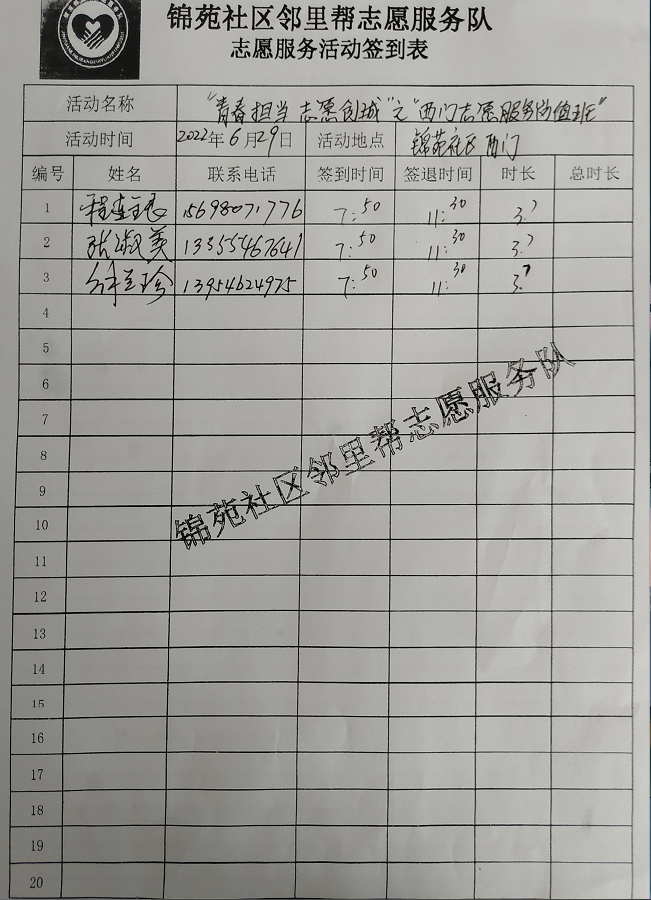 锦苑社区邻里帮志愿服务队
志愿服务活动签到表
活动名称 “青春担当 志愿创城”之“西门志愿服务岗值班”
活动时间 2022年6月29日 活动地点 锦苑社区西门
编号 姓名 联系电话 签到时间 签退时间 时长 总时长
1 程 15698071776 7:50 11:30 3.7
2 张淑美 13355467641 7:50 11:30 3.7
3 珍 13954624975 7:50 11:30 3.7
4
5
6
7
8
9
10
11
12
13
14
15
16
17
18
19
20
锦苑社区邻里帮志愿服务队